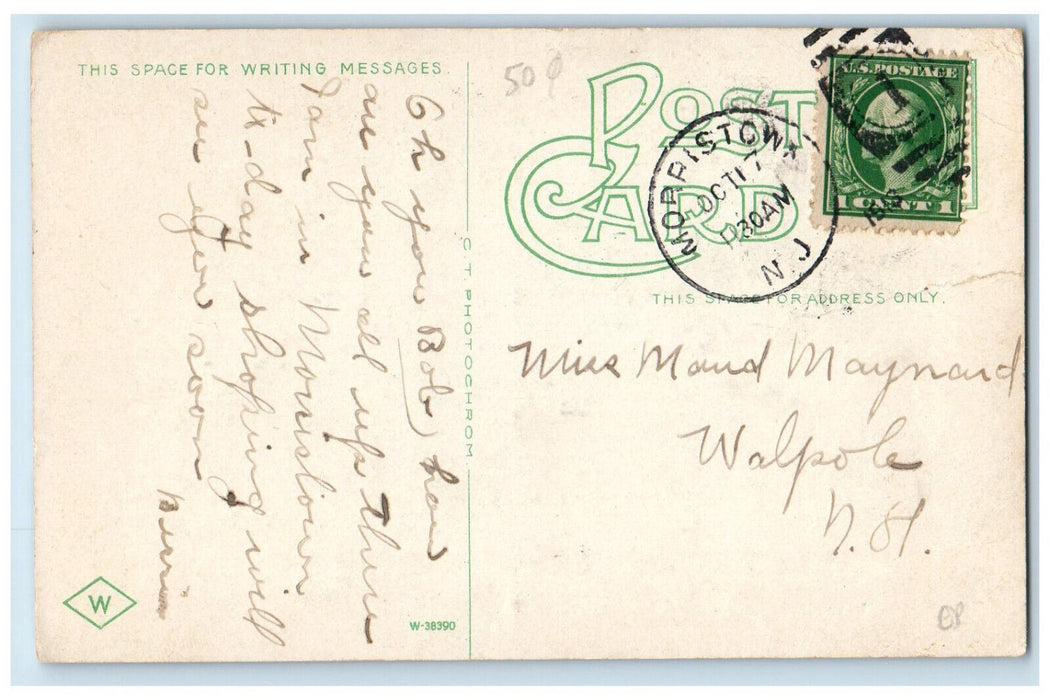 THIS SPACE FOR WRITING MESSAGES.
50¢
POST
CARD
U.S. POSTAGE
1 CENT 1
MORRISTOWN
OCT 17
30AM
N.J.
THIS SPACE FOR ADDRESS ONLY.
Oh you Bob, how
are you all up there
I am in Morristown
to-day shoping will
see you soon
C.T. PHOTOCHROM
Miss Maud Maynard
Walpole
N.H.
W
W-38390